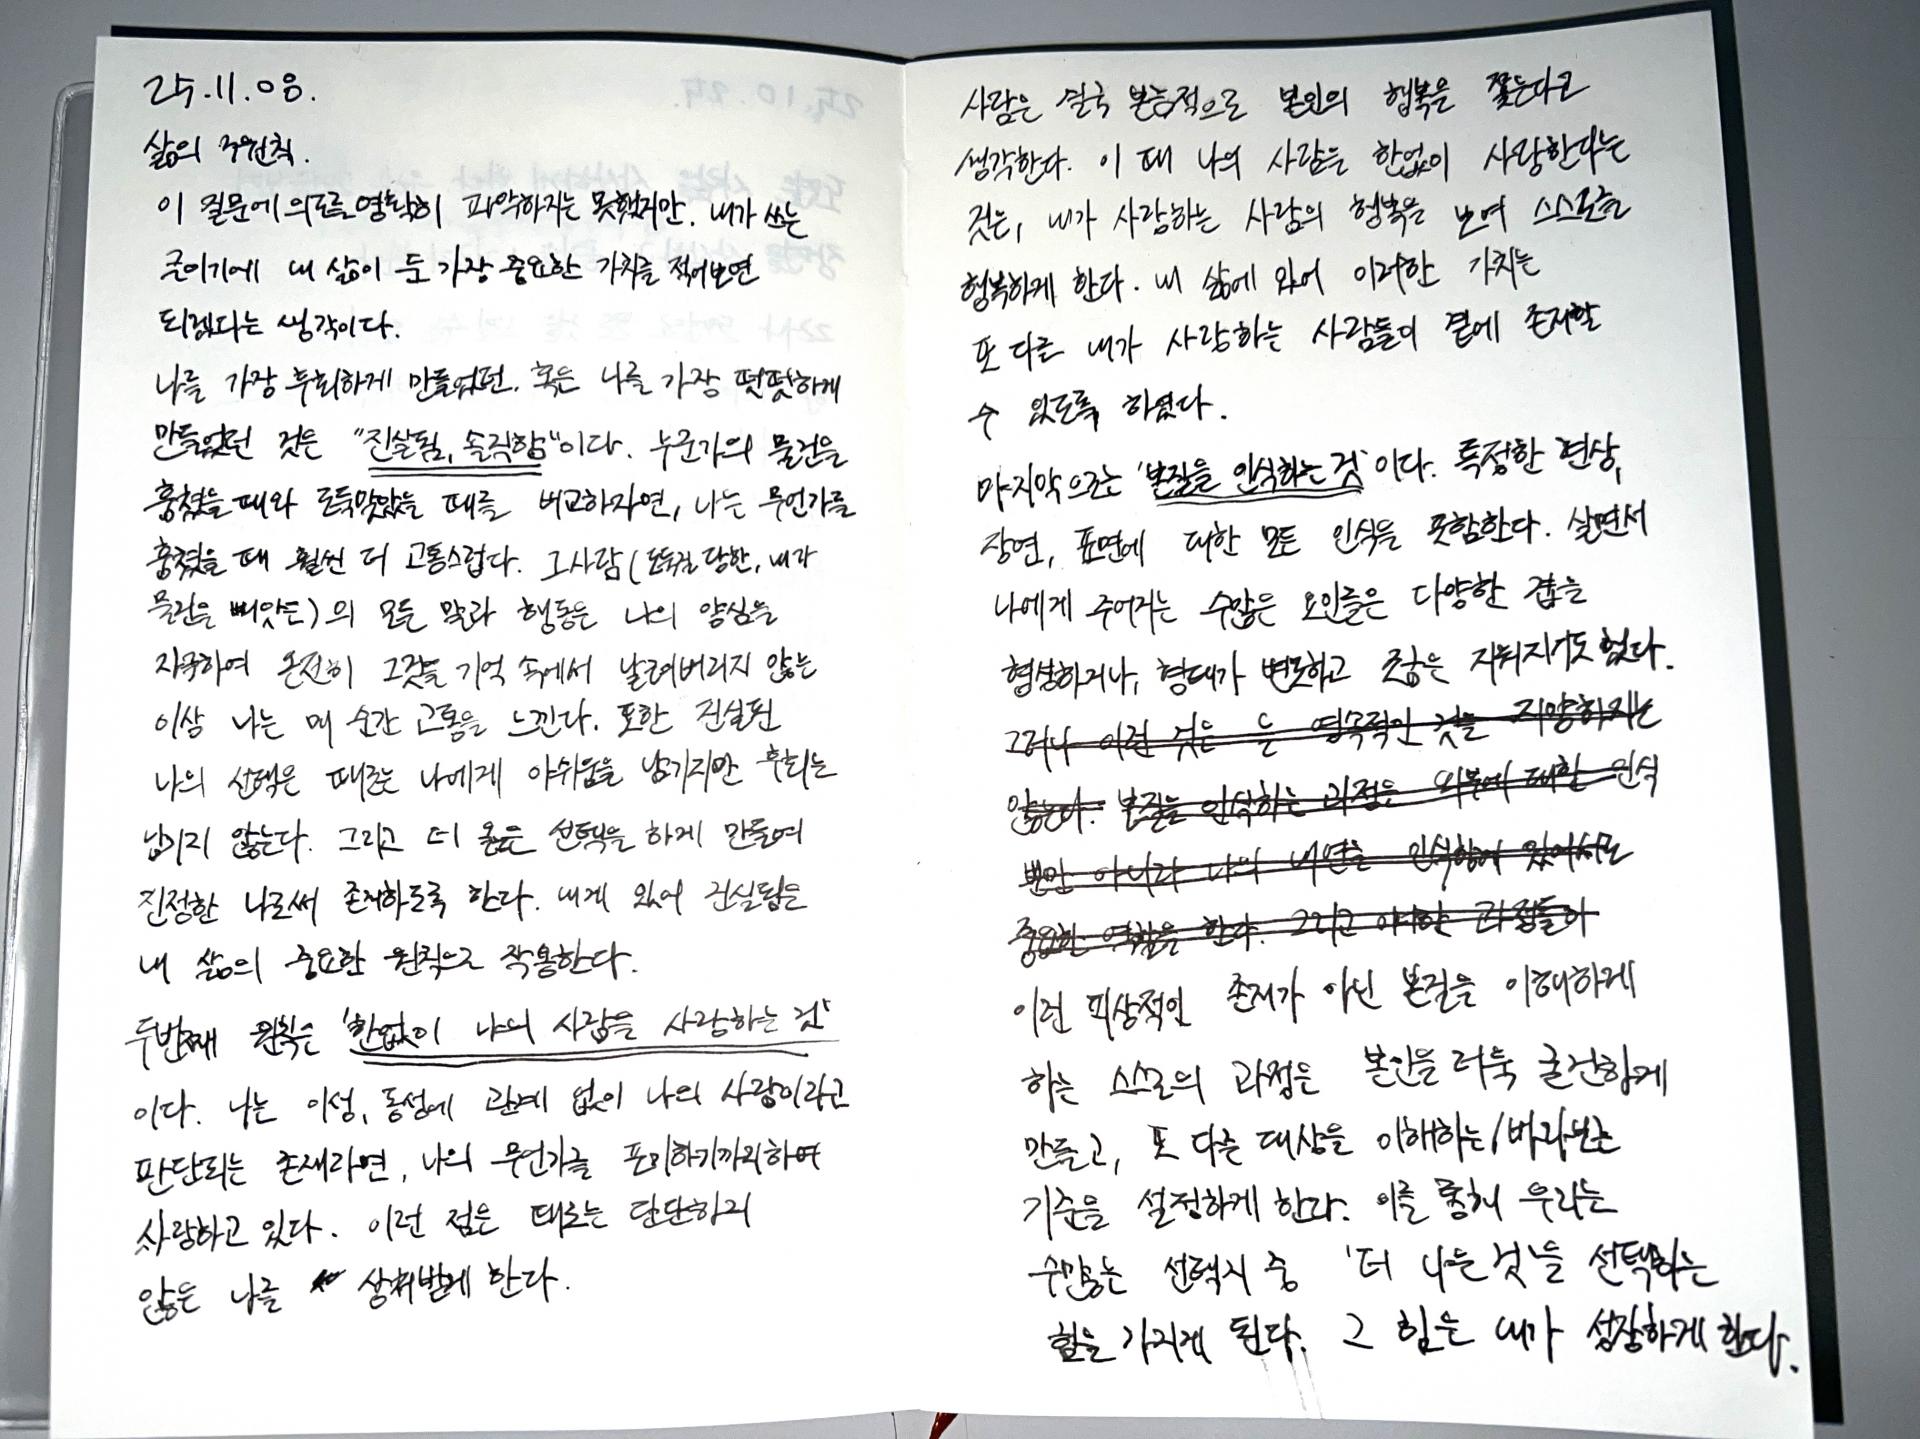 25.11.08.
삶의 주원칙.
이 질문에 의도를 명확히 파악하지는 못했지만. 내가 쓰는
글이기에 내 삶이 둔 가장 중요한 가치를 적어보면
되겠다는 생각이다.
나를 가장 후회하게 만들었던. 혹은 나를 가장 떳떳하게
만들었던 것은 "진실됨, 솔직함"이다. 누군가의 물건을
훔쳤을 때와 도둑맞았을 때를 비교하자면, 나는 무언가를
훔쳤을 때 훨씬 더 고통스럽다. 그사람(도둑질 당한, 내가
물건을 빼앗은)의 모든 말과 행동은 나의 양심을
자극하여 온전히 그것들 기억 속에서 날려버리지 않는
이상 나는 매 순간 고통을 느낀다. 또한 진실된
나의 선택은 때로는 나에게 아쉬움을 남기지만 후회는
남기지 않는다. 그리고 더 옳은 선택을 하게 만들며
진정한 나로써 존재하도록 한다. 내게 있어 진실됨은
내 삶의 중요한 원칙으로 작용한다.
두번째 원칙은 '한없이 나의 사람을 사랑하는 것'
이다. 나는 이성, 동성에 관계 없이 나의 사랑이라고
판단되는 존재라면, 나의 무언가를 포기하기까지하며
사랑하고 있다. 이런 점은 때로는 단단하지
않은 나를 상처받게 한다.
사람은 결국 본능적으로 본인의 행복을 쫓는다고
생각한다. 이 때 나의 사람을 한없이 사랑한다는
것은, 내가 사랑하는 사람의 행복을 보며 스스로를
행복하게 한다. 내 삶에 있어 이러한 가치는
또 다른 내가 사랑하는 사람들이 곁에 존재할
수 있도록 하였다.
마지막으로는 '본질을 인식하는 것'이다. 특정한 현상,
장면, 표면에 대한 모든 인식을 뜻함한다. 살면서
나에게 주어지는 수많은 요인들은 다양한 겹을
형성하거나, 형태가 변못하고 혹은 지워지기도 했다.
그러나 이런 것은 는 영속적인 것을 지향하지는
않는다. 본질을 인식하는 과정은 외부에 대한 인식
뿐만 아니라 나의 내면을 인식함에 있어서도
중요한 역할을 한다. 그리고 이러한 과정들이
이런 피상적인 존재가 아닌 본질을 이해하게
하는 스스로의 과정은 본인을 더욱 굳건하게
만들고, 또 다른 대상을 이해하는/바라보는
기준을 설정하게 한다. 이를 통해 우리는
수많은 선택지 중 '더 나은 것'을 선택하는
힘을 가지게 된다. 그 힘은 내가 성장하게 한다.